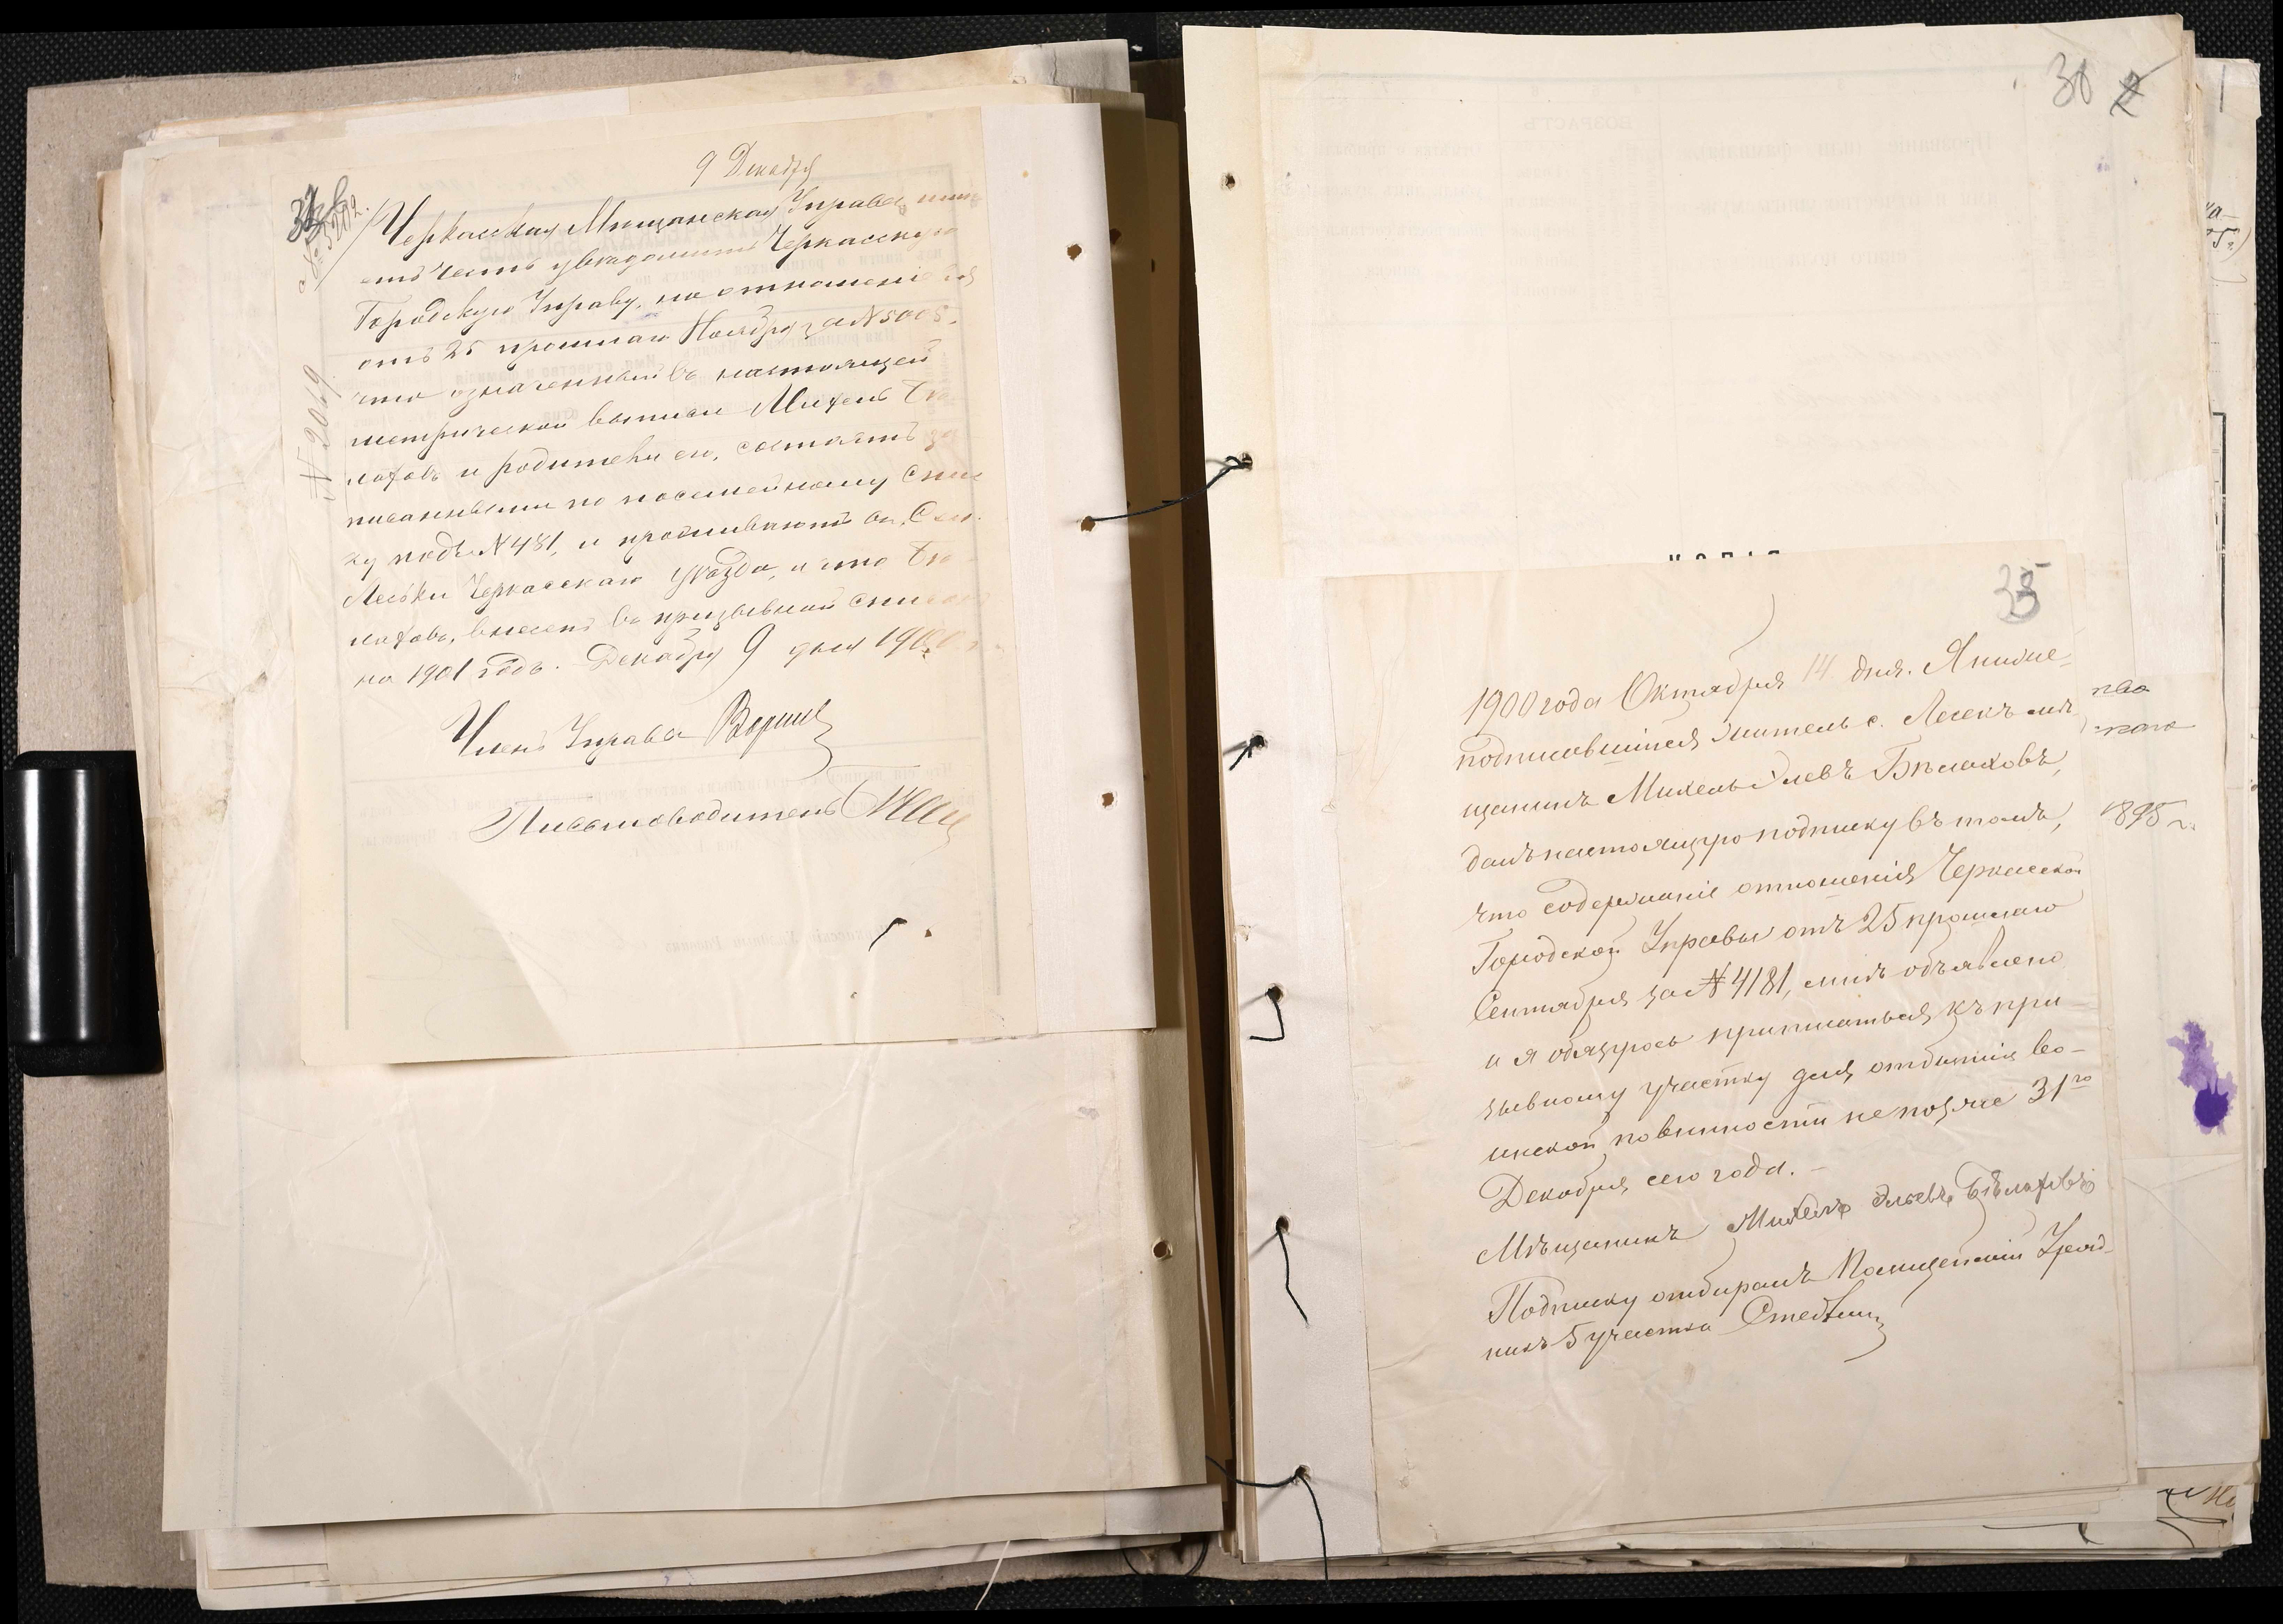 9 Декабря
Черкасская Мѣщанская Управа имѣ-
етъ честь увѣдомить Черкасскую
Городскую Управу, на отношеніе ея
отъ 25 прошлаго Ноября за № 5005,
что означенный въ настоящей
метрической выписи Михель Бѣ-
лаховъ и родители его, состоятъ за-
писанными по посемейному спис-
ку подъ № 481, и проживаютъ въ с.
Леськи Черкасскаго уѣзда, и что Бѣ-
лаховъ, внесенъ въ призывной списокъ
на 1901 годъ. Декабря 9 дня 1900 г.
Членъ Управы
Письмоводитель
№ 2049
30
35
1900 года Октября 14 дня. Я нижепо-
подписавшійся житель с. Лесекъ мѣ-
щанинъ Михель Элевъ Бѣлаховъ,
далъ настоящую подписку въ томъ,
что содержаніе отношенія Черкасской
Городской Управы отъ 25 прошлаго
Сентября за № 4181, мнѣ объявлено
и я обязуюсь приписаться къ при-
зывному участку для отбытія во-
инской повинности не позже 31го
Декабря сего года. –
Мѣщанинъ Михель Эльевъ Бѣлаховъ
Подписку отбиралъ Полицейскій Уряд-
никъ 5 участка
1895 г.